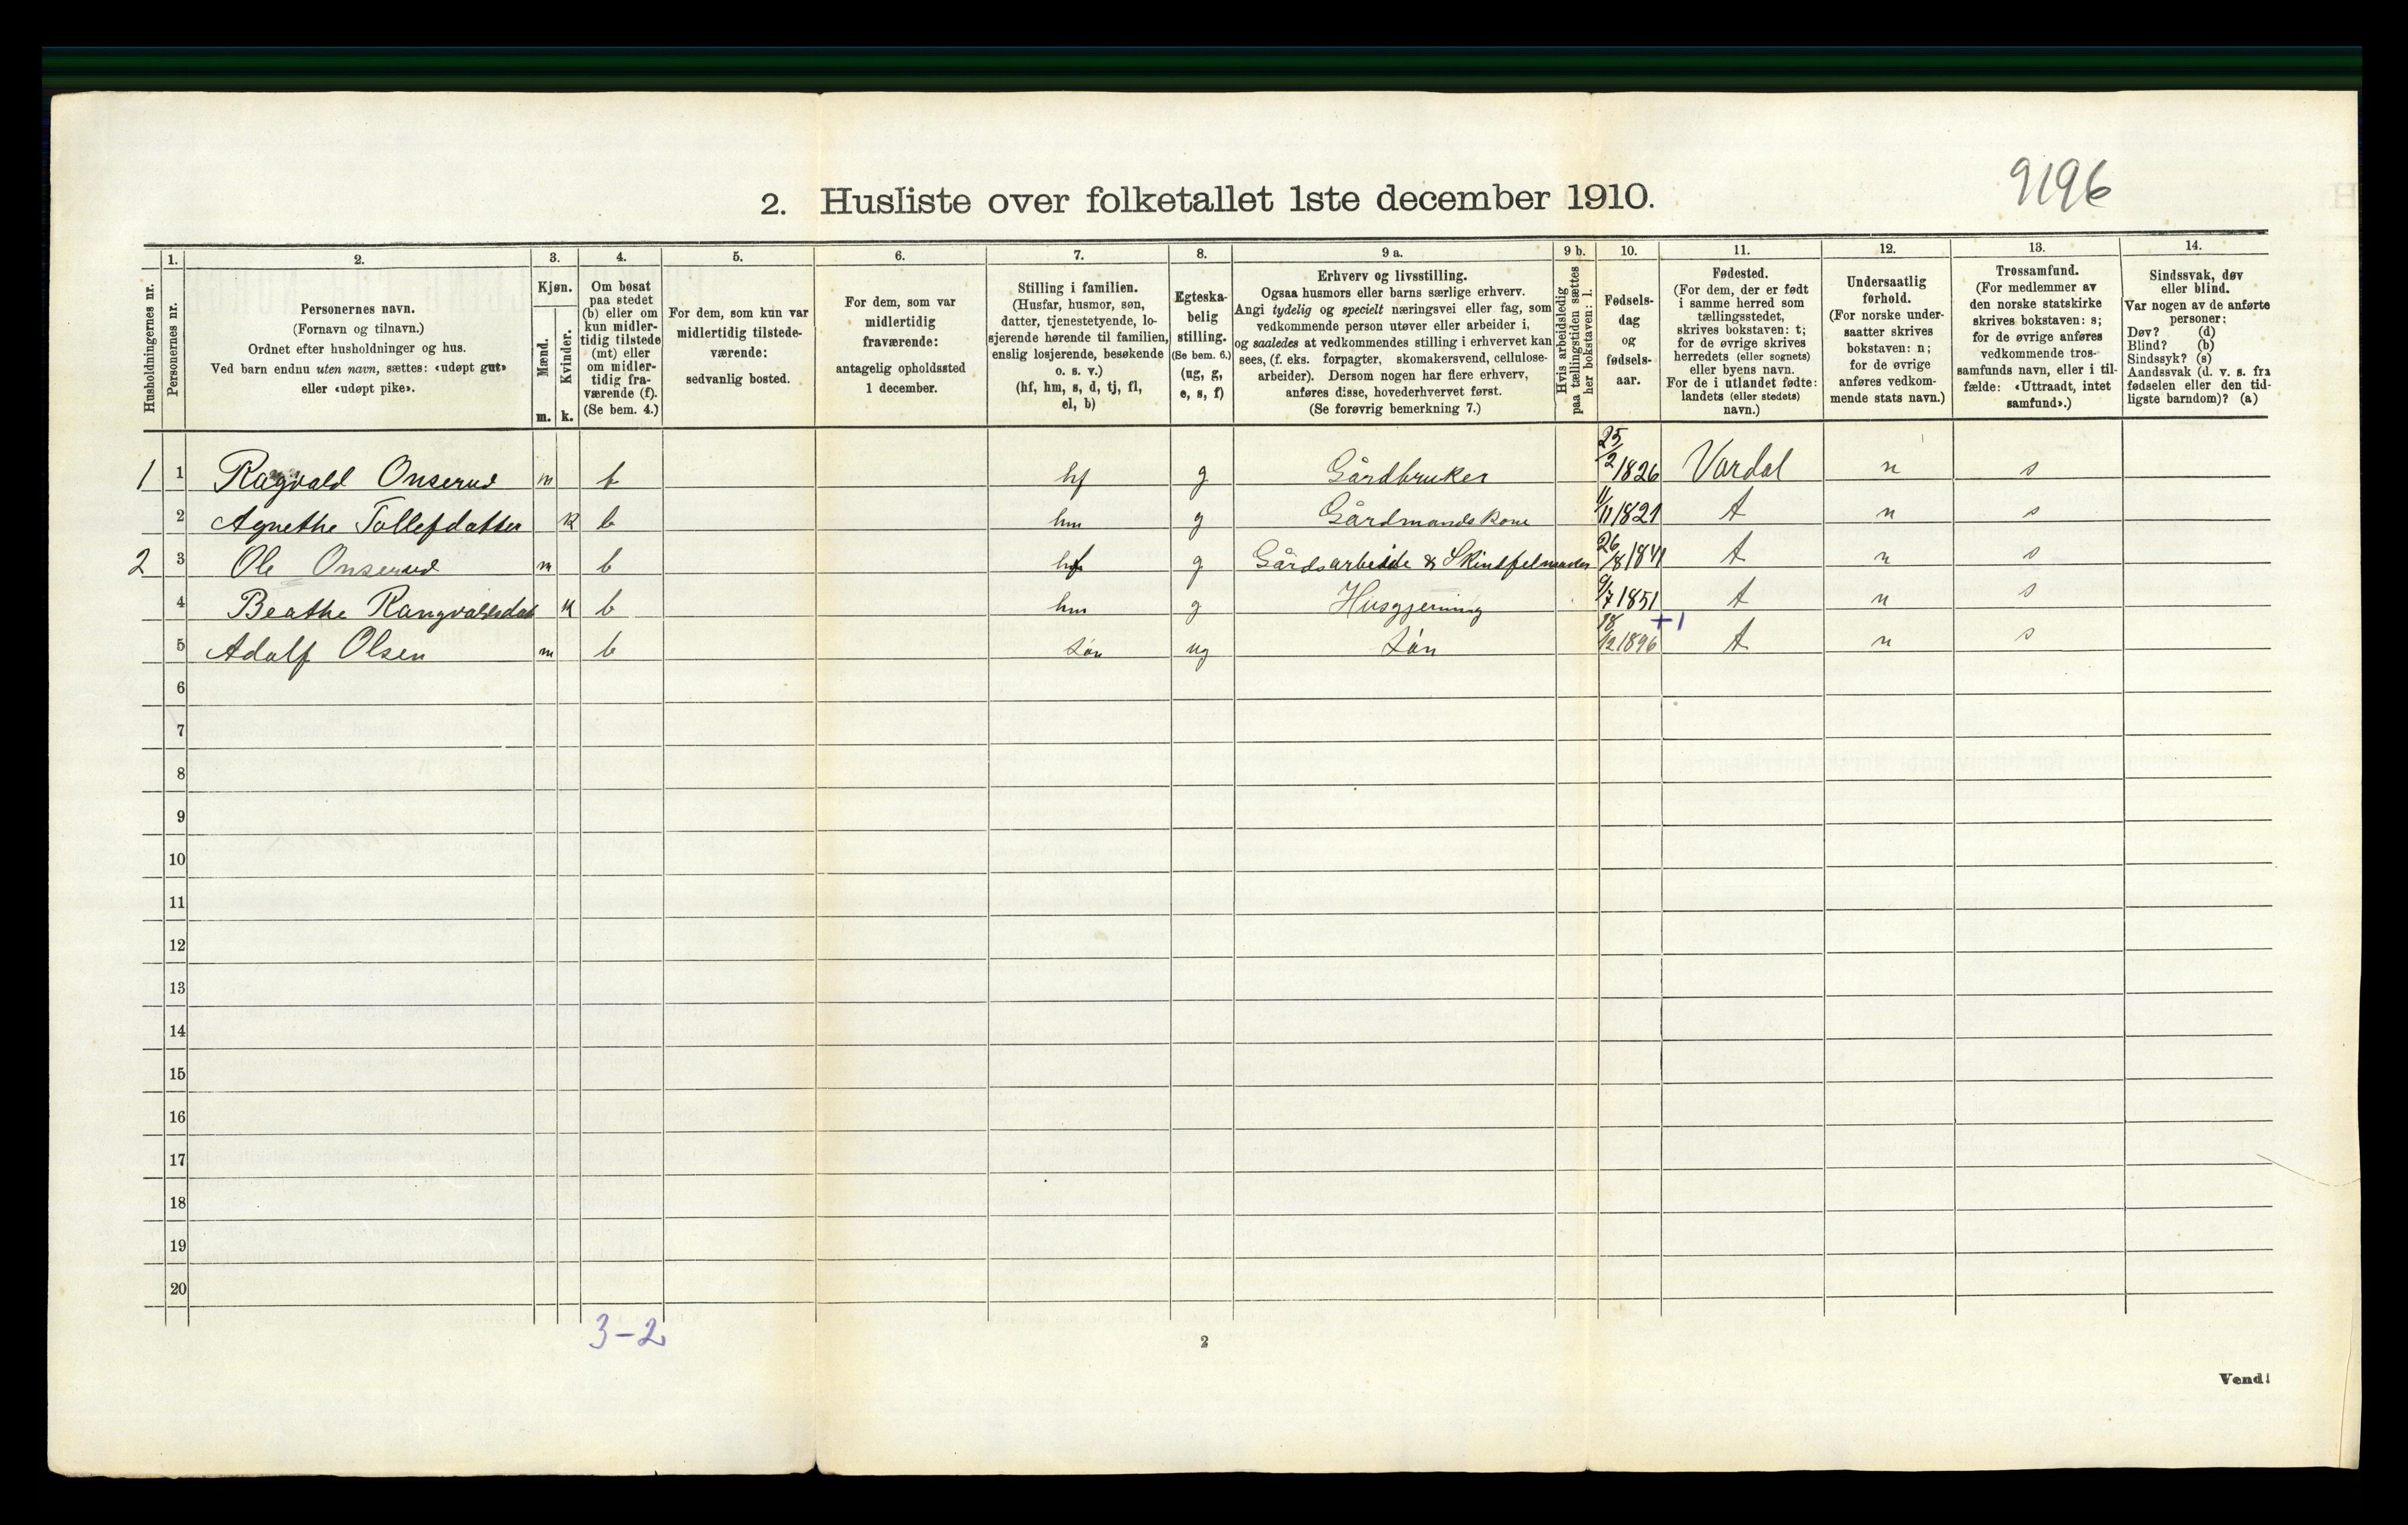 9196
2. Husliste over folketallet 1ste december 1910.
Husholdningernes nr.
1.
Personernes nr.
2.
Personernes navn.
(Fornavn og tilnavn.)
Ordnet efter husholdninger og hus.
Ved barn endnu uten navn, sættes: «udøpt gut»
eller «udøpt pike».
3.
Kjøn.
Mænd.
Kvinder.
m. k.
4.
Om bosat
paa stedet
(b) eller om
kun midler-
tidig tilstede
(mt) eller
om midler-
tidig fra-
værende (f).
(Se bem. 4.)
5.
For dem, som kun var
midlertidig tilstede-
værende:
sedvanlig bosted.
6.
For dem, som var
midlertidig
fraværende:
antagelig opholdssted
1 december.
7.
Stilling i familien.
(Husfar, husmor, søn,
datter, tjenestetyende, lo-
sjerende hørende til familien,
enslig losjerende, besøkende
o. s. v.)
(hf, hm, s, d, tj, fl,
el, b)
8.
Egteska-
belig
stilling.
(Se bem. 6.)
(ug, g,
e, s, f)
9 a.
Erhverv og livsstilling.
Ogsaa husmors eller barns særlige erhverv.
Angi tydelig og specielt næringsvei eller fag, som
vedkommende person utøver eller arbeider i,
og saaledes at vedkommendes stilling i erhvervet kan
sees, (f. eks. forpagter, skomakersvend, cellulose-
arbeider). Dersom nogen har flere erhverv,
anføres disse, hovederhvervet først.
(Se forøvrig bemerkning 7.)
9 b.
Hvis arbeidsledig
paa tællingstiden sættes
her bokstaven: l.
10.
Fødsels-
dag
og
fødsels-
aar.
11.
Fødested.
(For dem, der er født
i samme herred som
tællingsstedet,
skrives bokstaven: t;
for de øvrige skrives
herredets (eller sognets)
eller byens navn.
For de i utlandet fødte:
landets (eller stedets)
navn.)
12.
Undersaatlig
forhold.
(For norske under-
saatter skrives
bokstaven: n;
for de øvrige
anføres vedkom-
mende stats navn.)
13.
Trossamfund.
(For medlemmer av
den norske statskirke
skrives bokstaven: s;
for de øvrige anføres
vedkommende tros-
samfunds navn, eller i til-
fælde: «Uttraadt, intet
samfund».)
14.
Sindssvak, døv
eller blind.
Var nogen av de anførte
personer:
Døv? (d)
Blind? (b)
Sindssyk? (s)
Aandssvak (d. v. s. fra
fødselen eller den tid-
ligste barndom)? (a)
1 1 Ragvald Onserud m b hf g Gårdbruker 25/2 1826 Vardal n s
2 Agnethe Tollefdatter k b hm g Gårdmandskone 11/11 1821 t n s
2 3 Ole Onserud m b hf g Gårdsarbeide & 26/8 1841 t n s
4 Beathe Rangvaldsdat k b hm g Husgjerning /7 1851 t n s
+1
5 Adolf Olsen m b søn ug søn 18/12 1896 t n s
6
7
8
9
10
11
12
13
14
15
16
17
18
19
20
3-2
2
Vend!